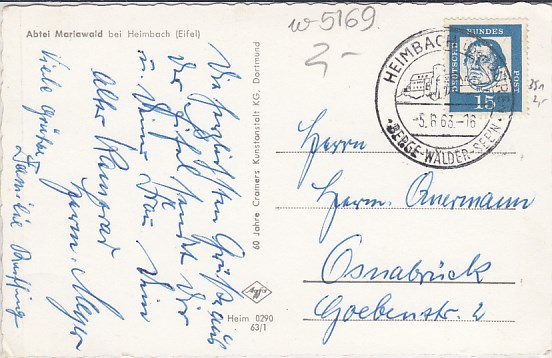 Abtei Mariawald bei Heimbach (Eifel)
w 5169
2,-
Die herzlichsten Grüße aus
der Eifel sendet Dir
u. Deiner Frau Dein
alter Kamerad
Herm. Meyer
Viele Grüße
Familie
60 Jahre Cramers Kunstanstalt KG, Dortmund
Agfa
Heim 0290
63/1
HEIMBACH
-5.8.63.-16
BERGE-WÄLDER-SEEN
DEUTSCHE BUNDESPOST
15
2,-
Herrn
Herm.
Osnabrück
Goebenstr. 2